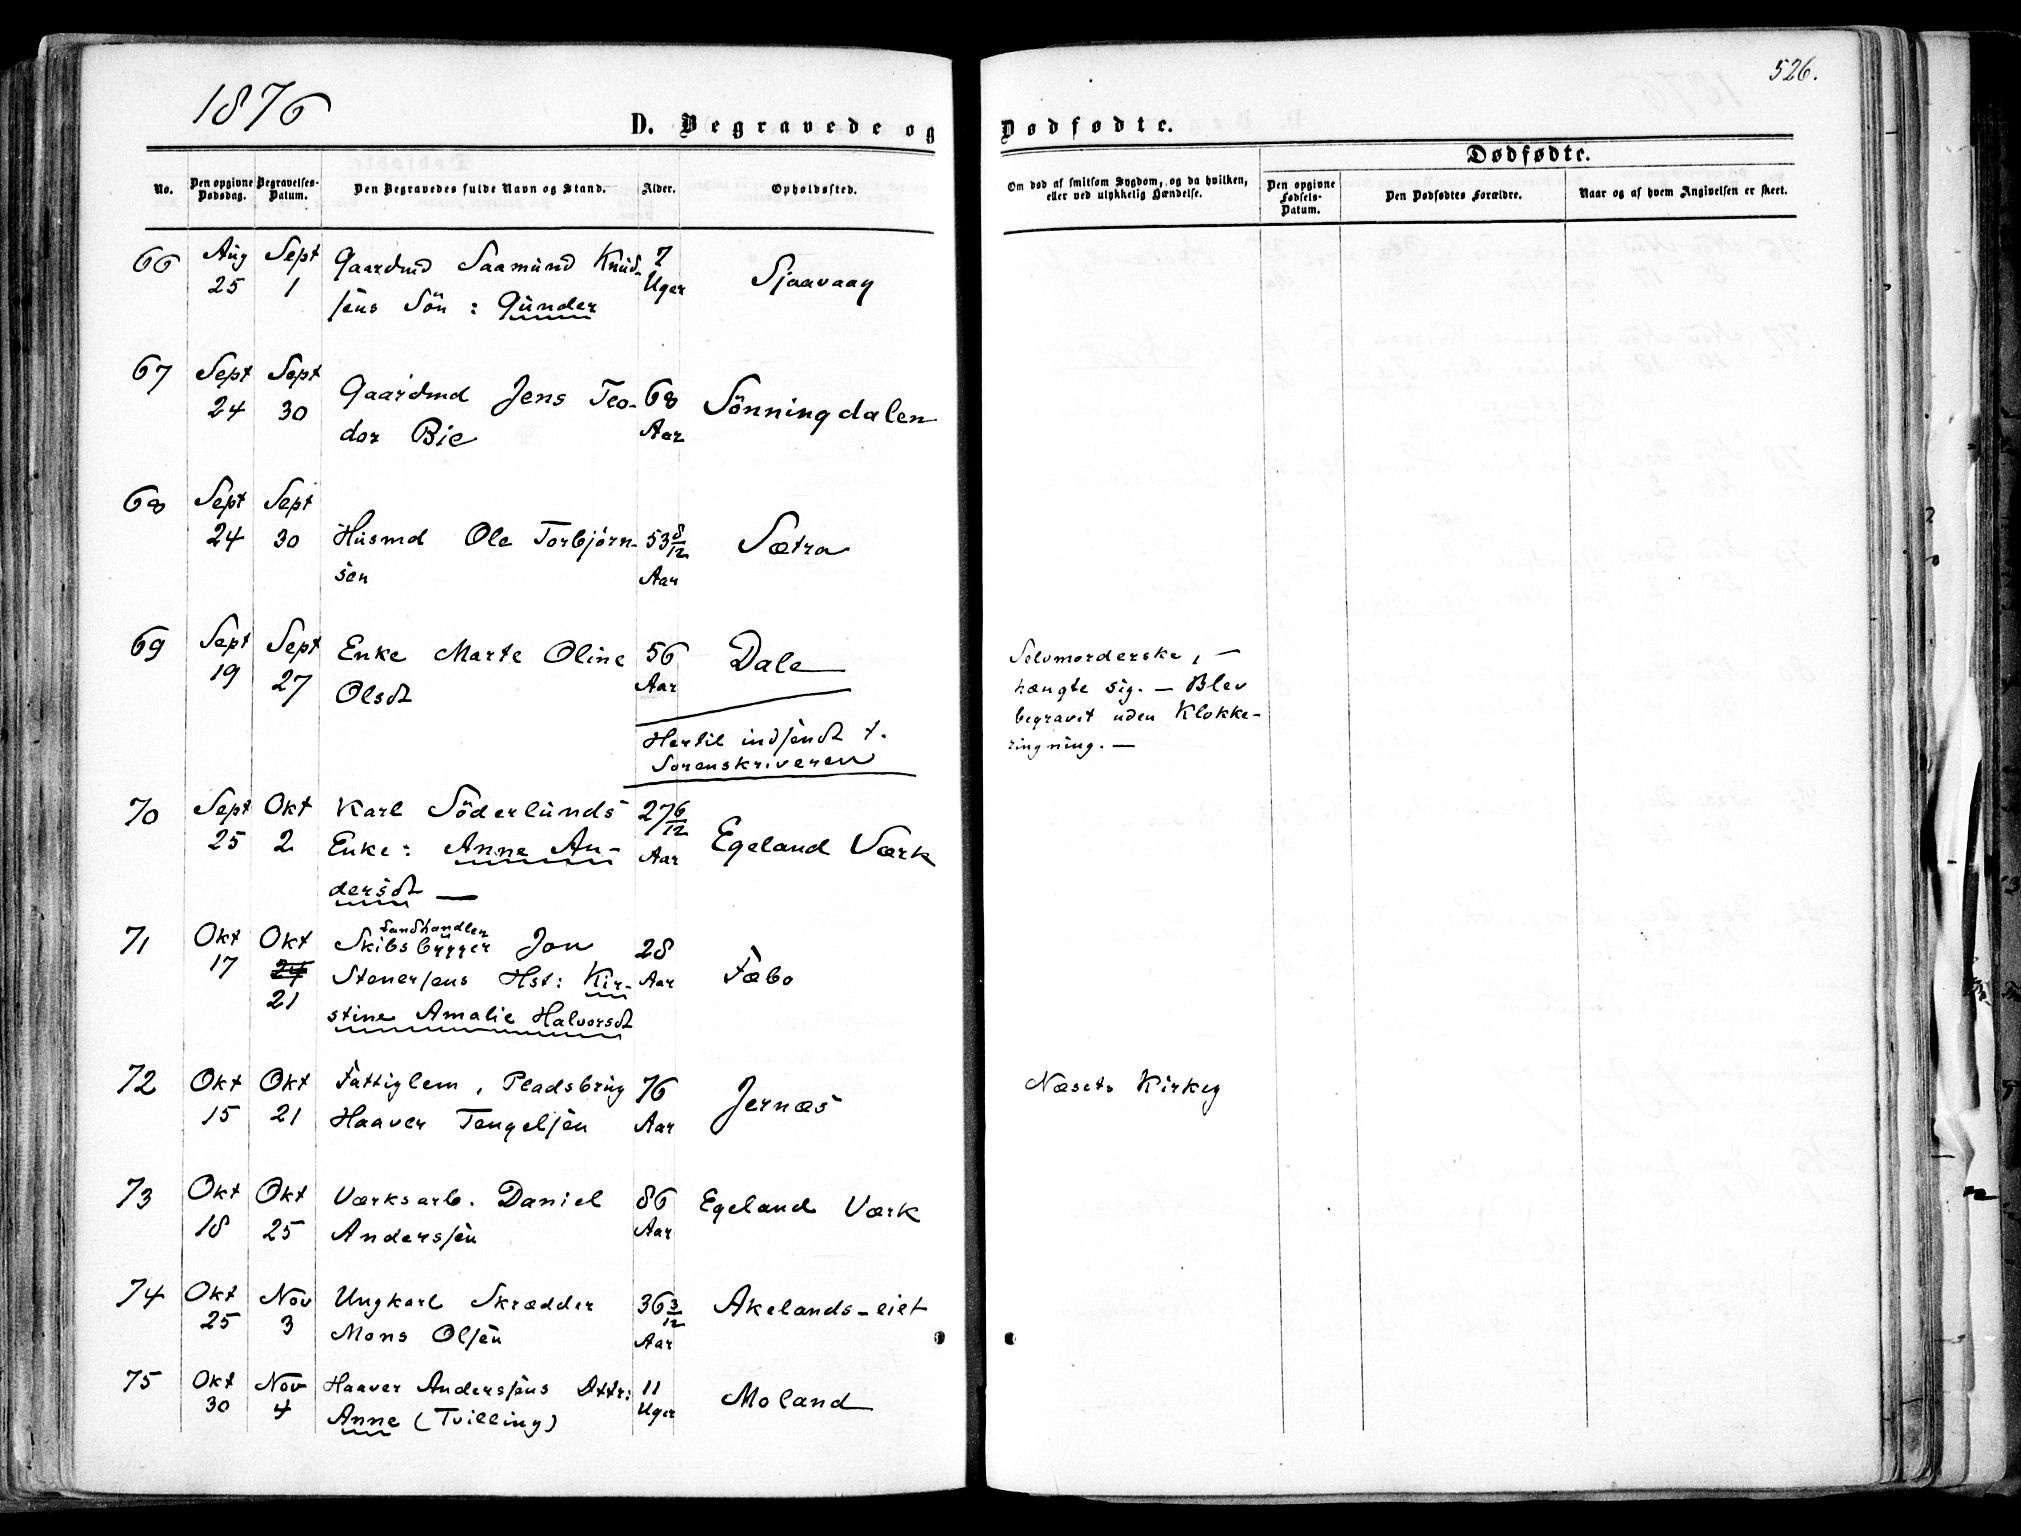 1876
526.
D. Begravede og Dødfødte.
Dødfødte.
No.
Den opgivne Dødsdag.
Begravelses-Datum.
Den Begravedes fulde Navn og Stand.
Alder.
Opholdssted.
Om død af smitsom Sygdom, og da hvilken,
eller ved ulykkelig Hændelse.
Den opgivne Fødsels-Datum.
Den Dødfødtes Forældre.
Naar og af hvem Angivelsen er skeet.
66 Aug Sept Gaardmd Saamund Knud- 7
25 1 sens Sön : Gunder Uger Sjaavaag
67 Sept Sept Gaardmd Jens Teo- 68 Sönningdalen
24 30 dor Bie Aar
68 Sept Sept
24 30 Husmd Ole Torbjörn- 53 8/12 Sætra
sen Aar
69 Sept Sept Enke Marte Oline 56 Dale
19 27 Olsdt Aar
Selvmorderske, —
hængte sig. — Blev
begravet uden Klokke-
ringning. —
Hertil indsendt t.
Sorenskriveren
70 Sept Okt Karl Söderlunds 27 6/12
25 2 Enke: Anne An- Aar Egeland Værk
dersdt —
71 Okt Okt Sandhandler
Skibsbygger Jon 28
17 24 Stenersens Hst: Kir- Aar Fæbo
21 stine Amalie Halvorsdt
72 Okt Okt Fattiglem, Pladsbrug 76 Jernæs Næsets Kirkeg
15 21 Haaver Tengelsen Aar
73 Okt Okt Værksarb. Daniel 86 Egeland Værk
18 25 Anderssen Aar
74 Okt Nov Ungkarl Skrædder 36 3/12 Akelands-eiet
25 3 Mons Olsen Aar
75 Okt Nov Haaver Anderssens Dttr: 11 Moland
30 4 Anne (Tvilling) Uger